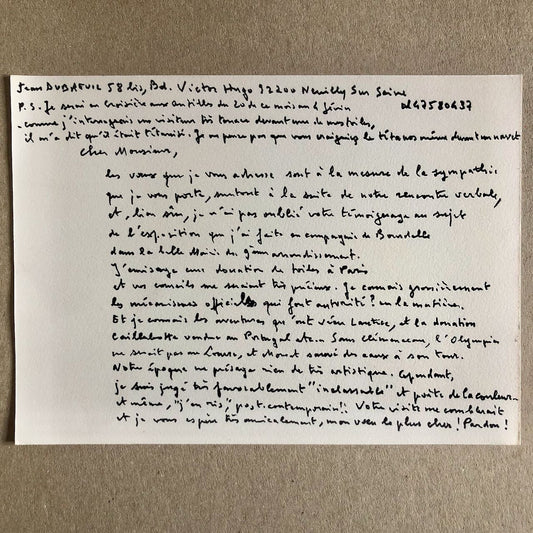 Jean DUBREUIL 58 bis, Bd. Victor Hugo 92200 Neuilly Sur Seine
P.S. Je serai en Croisière aux Antilles du 20 de ce mois au 4 février 47580437
- comme j'interrogeais un visiteur très tenace devant une de mes toiles,
il m'a dit qu'il était tétanisé. Je ne pense pas que vous craigniez le tétanos même devant un navet
Cher Monsieur,
les vœux que je vous adresse sont à la mesure de la sympathie
que je vous porte, surtout à la suite de notre rencontre verbale,
et, bien sûr, je n'ai pas oublié votre témoignage au sujet
de l'exposition que j'ai faite en compagnie de Bourdelle
dans la belle Mairie du 9ème arrondissement.
J'envisage une donation de toiles à Paris
et vos conseils me seraient très précieux. Je connais grossièrement
les mécanismes officiels qui font autorité? en la matière.
Et je connais les aventures qu'ont vécu Lautrec, et la donation
Caillebotte vendue au Portugal etc... Sans Clémenceau, l'Olympia
ne serait pas au Louvre, et Monet sauvé des eaux à son tour.
Notre époque ne présage rien de très artistique. Cependant,
je suis jugé très favorablement "inclassable" et poète de la couleur
et même, "j'en ris," post-contemporain!! Votre visite me comblerait
et je vous espère très amicalement, mon vœu le plus cher! Pardon!